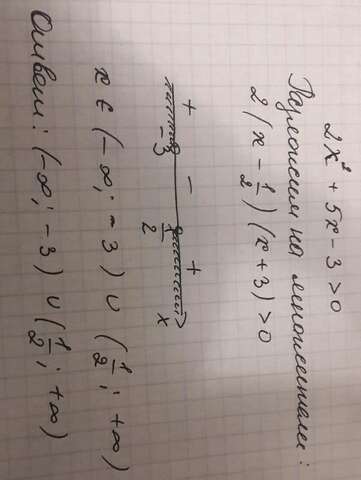 2x² + 5x - 3 > 0
Разложим на множители:
2(x - 1/2)(x + 3) > 0
+ - +
-3 1/2 x
x ∈ (-∞; -3) ∪ (1/2; +∞)
Ответ: (-∞; -3) ∪ (1/2; +∞)